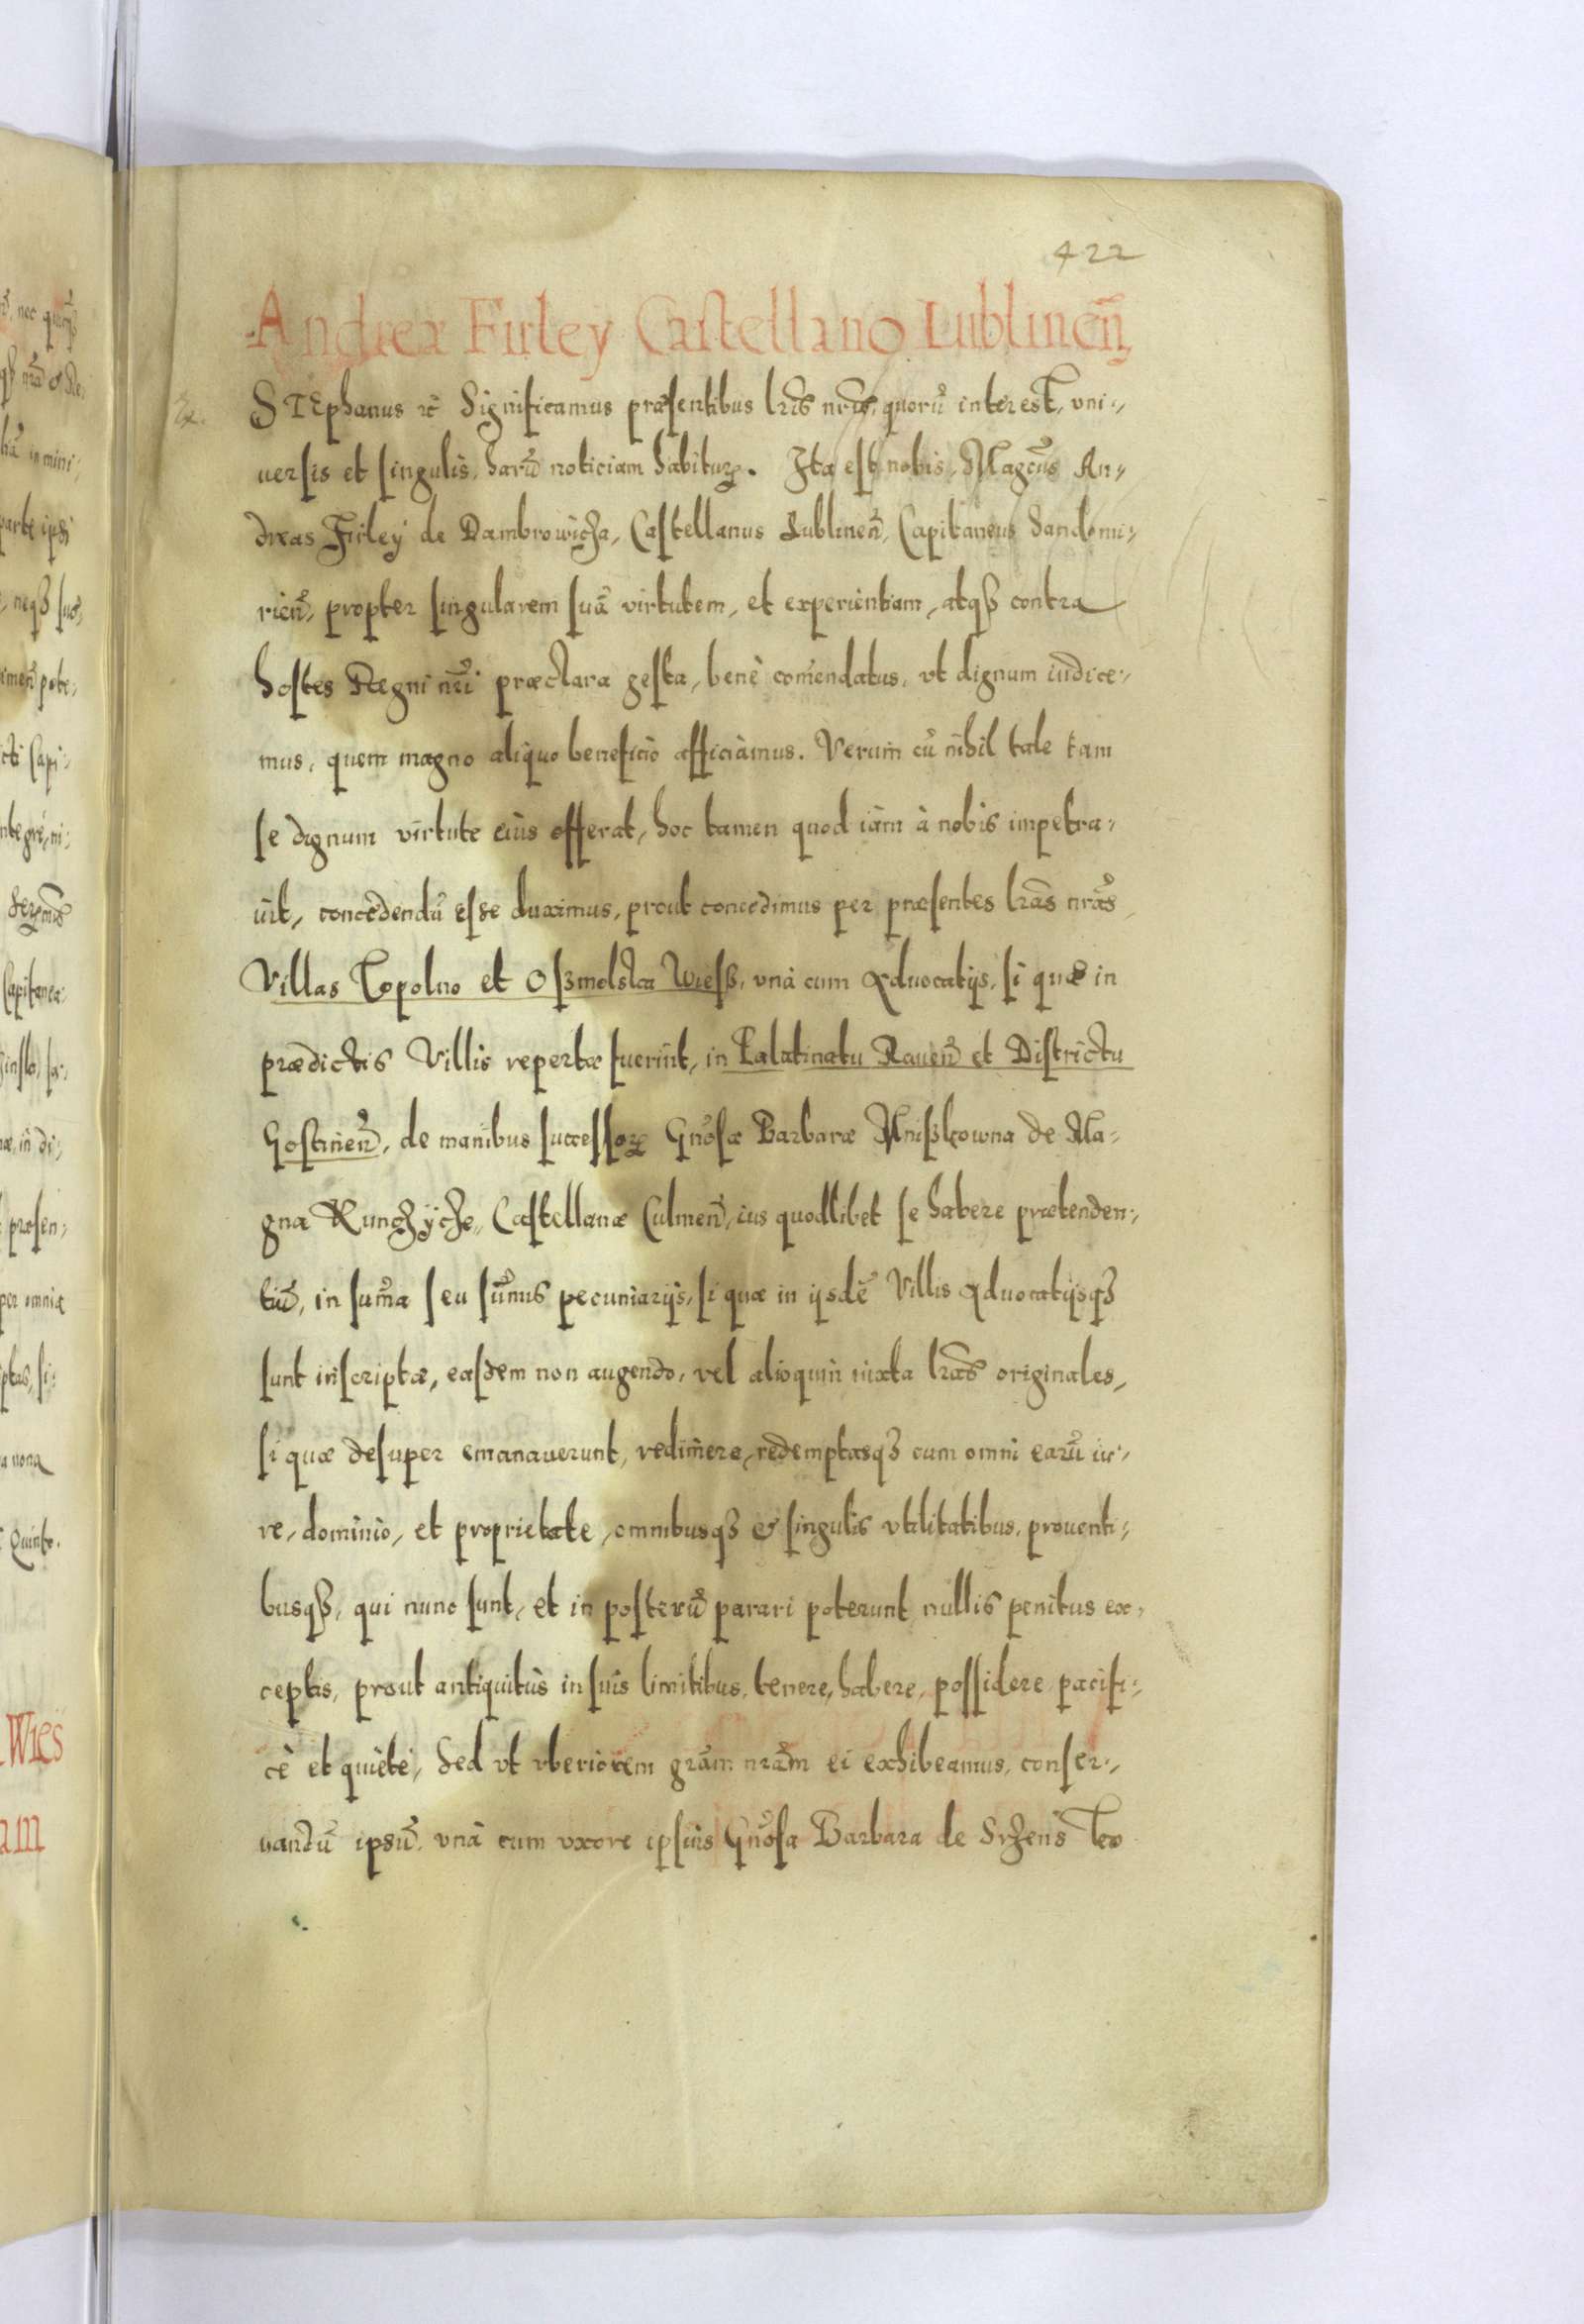 422
Andreæ Firley Castellano Lublinen̄
STEphanus ꝛc̄ Significamus præsentibus lr̄is nr̄is, quorū interest, vni⸗
uersis et singulis, harū noticiam habituꝝ. Ita est nobis, Magc̄us An⸗
dreas Firley de Dambrowicza, Castellanus Lublinen̄, Capitaneus Sandomi⸗
rien̄, propter singularem suā virtutem, et experientiam, atqꝫ contra
hostes Regni nr̄i præclara gesta, benè com̄endatus, vt dignum iudice⸗
mus, quem magno aliquo beneficio afficiamus. Verum cū nihil tale tam
se dignum virtute eius offerat, hoc tamen quod iam à nobis impetra⸗
uit, concedendū esse duximus, prout concedimus per præsentes lr̄as nr̄as
Villas Topolno et Oszmolska Wiesz, vnà cum Aduocatijs, si quæ in
prædictis Villis repertæ fuerint, in Palatinatu Rauen̄ et Districtu
Gostinen̄, de manibus successoꝝ Gn̄osæ Barbaræ Mniszkowna de Ma⸗
gna Kunczycze, Castellanæ Culmen̄, ius quodlibet se habere prætenden⸗
tiū, in sum̄a seu sum̄is pecuniarijs, si quæ in ijsdē Villis Aduocatijsqꝫ
sunt inscriptæ, easdem non augendo, vel alioquin iuxta lr̄as originales,
si quæ desuper emanauerunt, redimere, redemptasqꝫ cum omni earū iu⸗
re, dominio, et proprietate, omnibusqꝫ & singulis vtilitatibus, prouenti⸗
busqꝫ, qui nunc sunt, et in posterū parari poterunt nullis penitus ex⸗
ceptis, prout antiquitùs in suis limitibus, tenere, habere, possidere pacifi⸗
cè et quietè, Sed vt vberiorem gr̄am nr̄am ei exhibeamus, conser⸗
uandū ipsū, vnà cum vxore ipsius Gn̄osa Barbara de Srzens